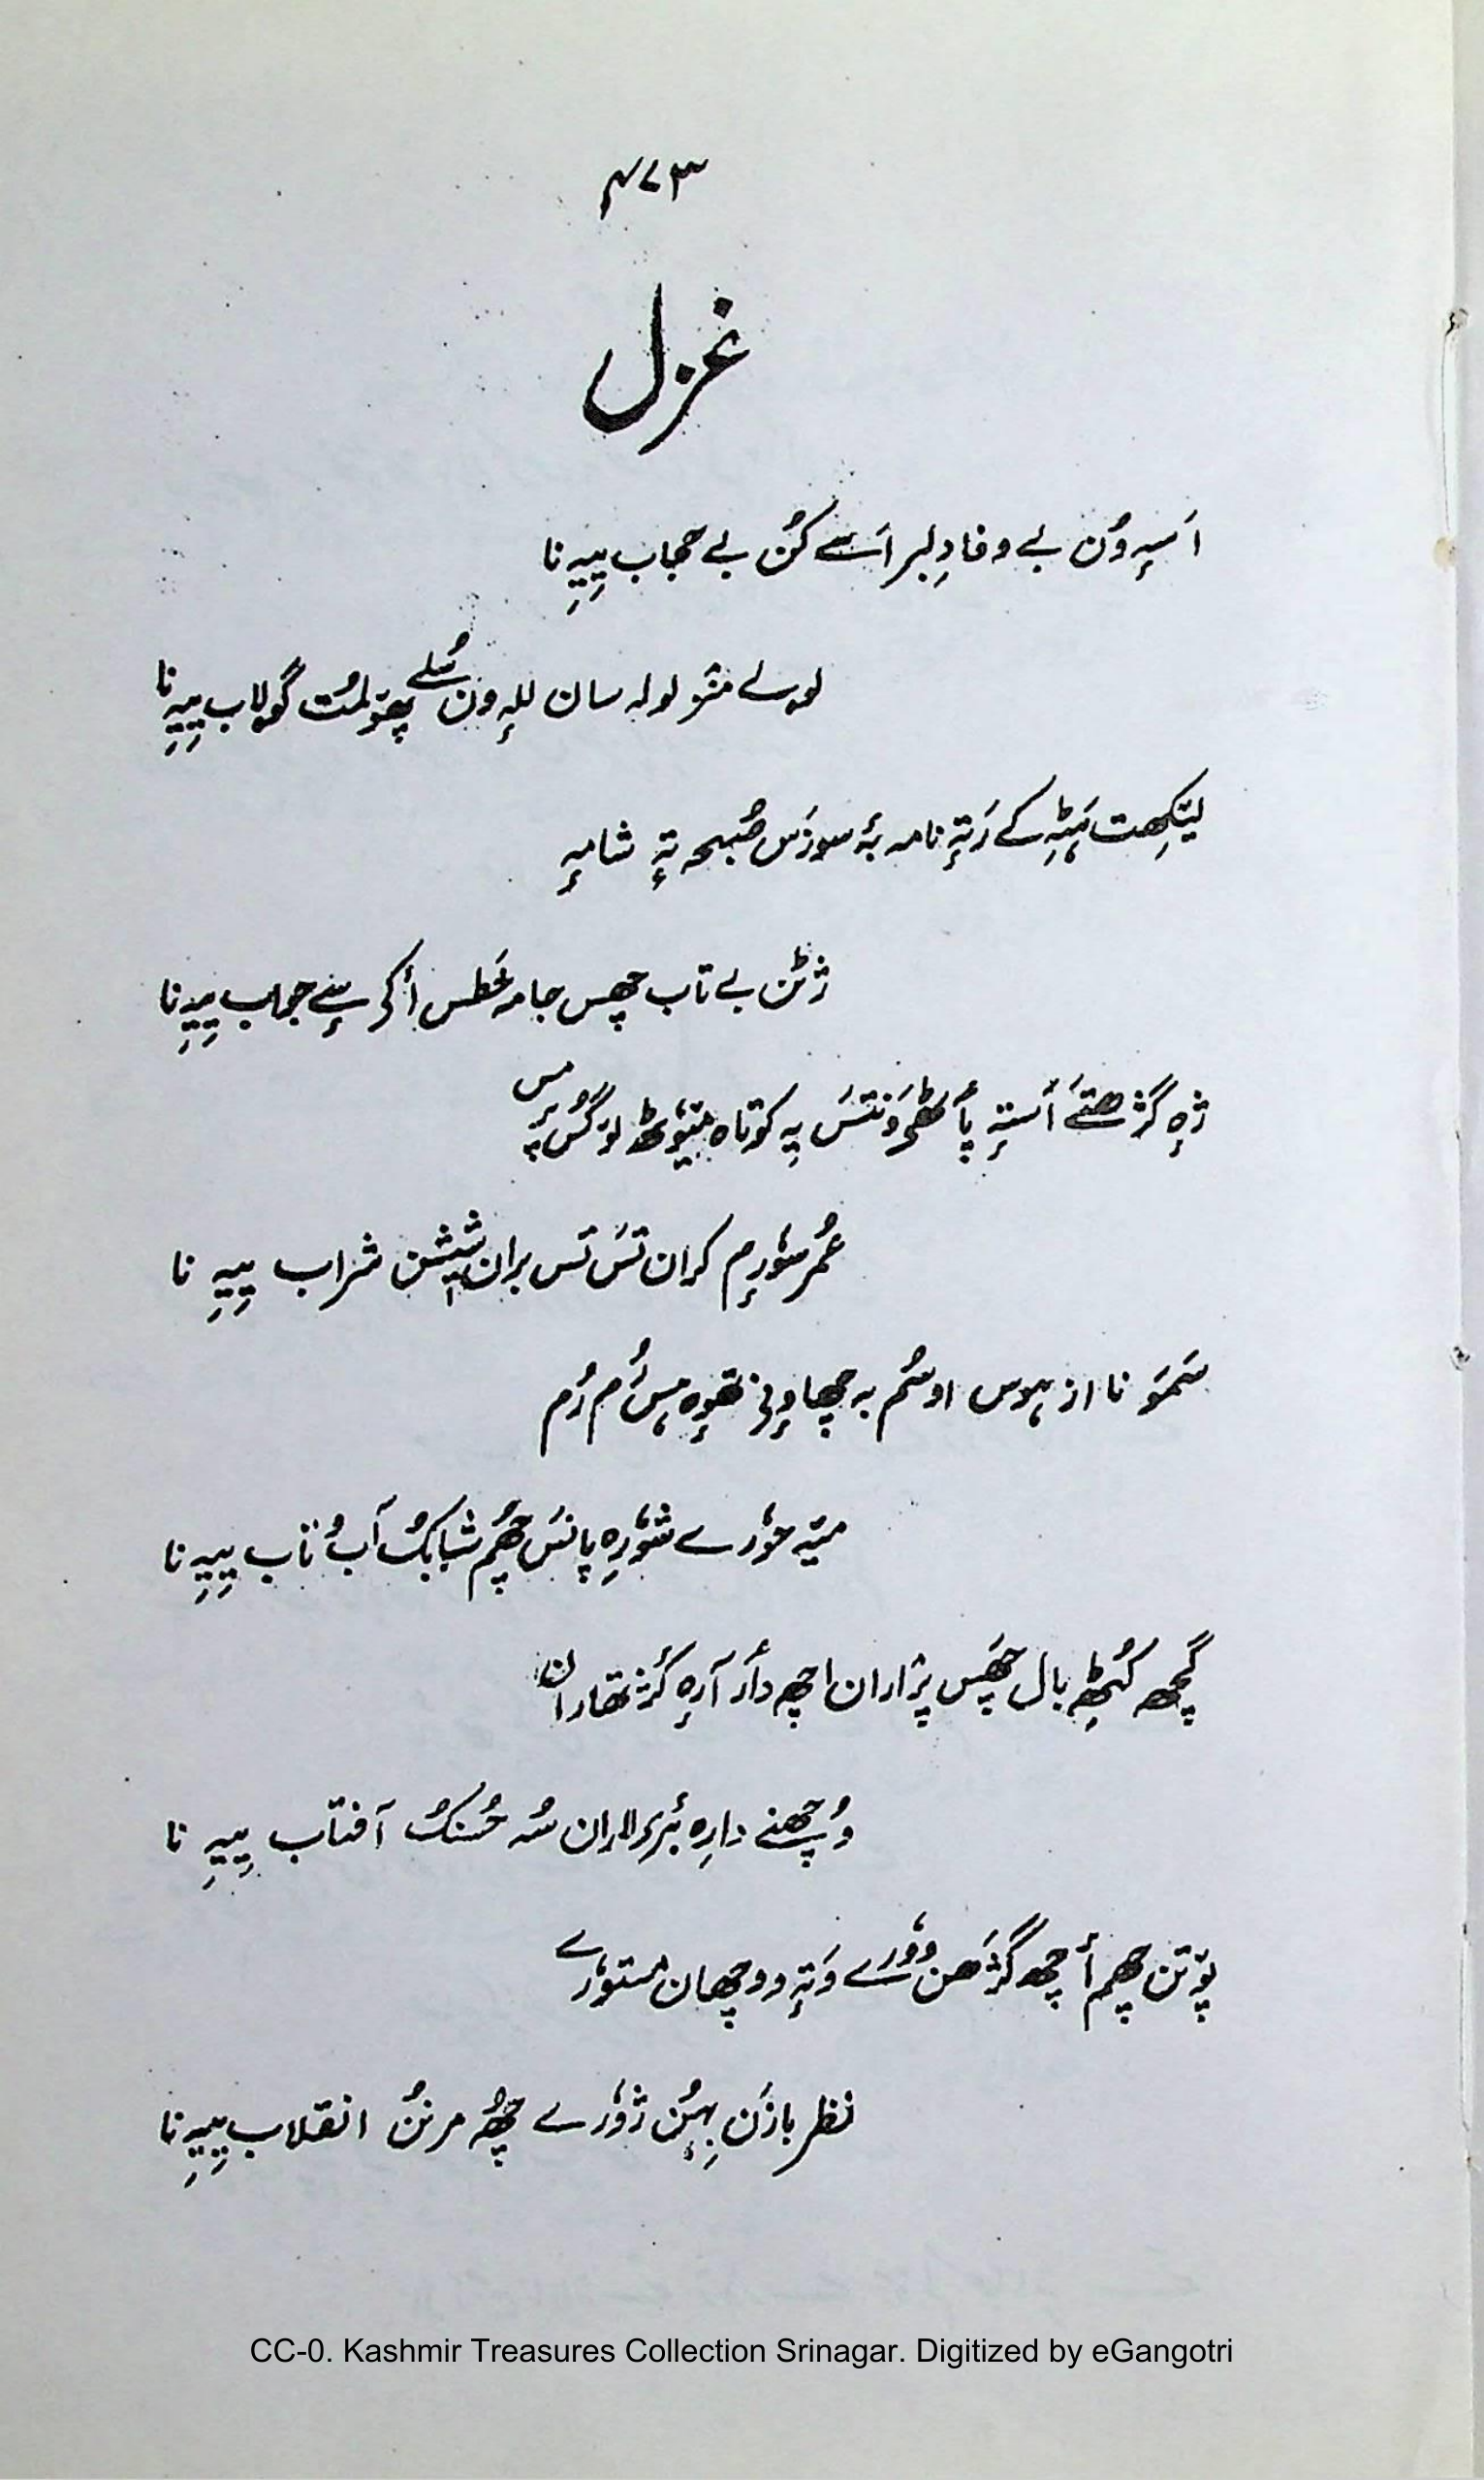 ۴۷۳
غزل
اَسہٕ وُن بے وفا دِلبر اَسے کُن بے حجاب یِیہِ نا
لولے منٛز لولہ سان للہٕ ون سُلے پھۆلمُت گولاب یِیہِ نا
لیٚکِھت ہَٹہِ کے رَتہٕ نامہ بہٕ سوزَس صُبحہ تہٕ شامہٕ
ژٹن بے تاب چھس جامہ خطس أکی سٕے جواب یِیہِ نا
ژہٕ گژھتَے أستہٕ پأٹھی وَنتَس یِہ کوتاہ میٛوٗٹھ لۆگُس بہٕ مس
عُمر سٔورِم کران تَس تَس بران شیشن شراب یِیہِ نا
سَمَو نا از ہوس اوسُم بہ چھاوٕنی تھوٕہ مس رُم رُم
میٚہ حوٗرے شوٗرِہ پانَس چُھم شبابُک آبُ تاب یِیہِ نا
گچھ کُٹھِ بال چَھس پرٛاران اچھ دأر آرہٕ کژ تھاران
وُچھنے دارِہ بٔرۍ لاران سُہ حُسنُک آفتاب یِیہِ نا
پۆتن چھم أچھ گژَھن دوٗرے وَتہٕ وچھان مستوٗرے
نظر بازَن بِہُن ژوٗرے چُھہ مرنُن انقلاب یِیہِ نا
CC-0. Kashmir Treasures Collection Srinagar. Digitized by eGangotri